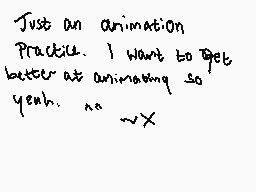 Just an animation
Practice. I want to get
better at animating so
yeah. ^^
~X